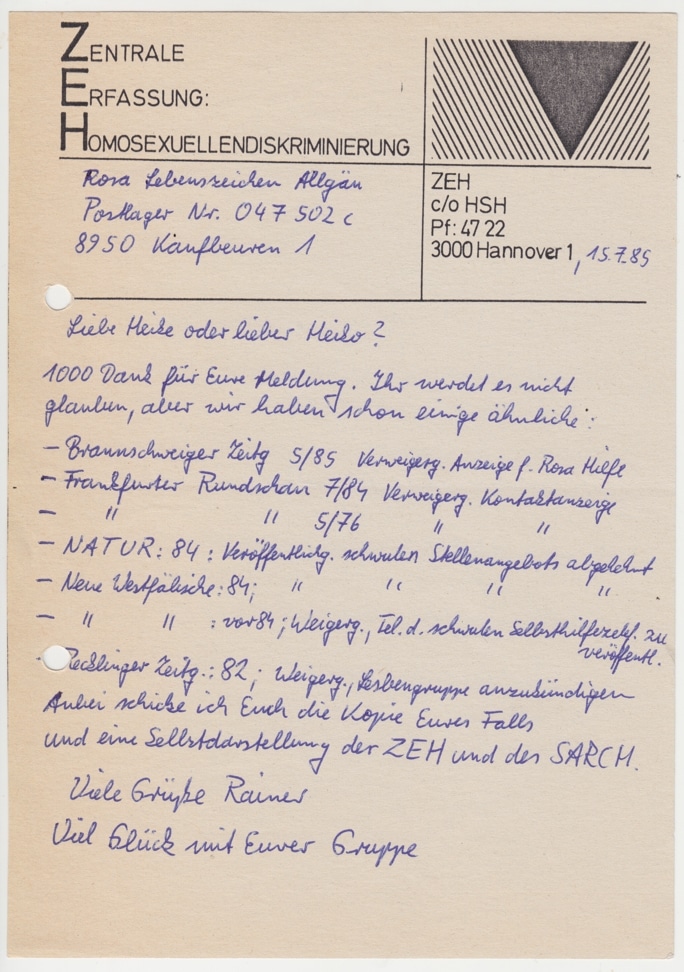 ZENTRALE
ERFASSUNG:
HOMOSEXUELLENDISKRIMINIERUNG
Rosa Lebenszeichen Allgäu
Postlager Nr. 047 502 c
8950 Kaufbeuren 1
ZEH
c/o HSH
Pf: 47 22
3000 Hannover 1, 15.7.85
Liebe Heike oder lieber Heiko?
1000 Dank für Eure Meldung. Ihr werdet es nicht
glauben, aber wir haben schon einige ähnliche:
- Braunschweiger Zeitg 5/85 Verweigerg. Anzeige f. Rosa Hilfe
- Frankfurter Rundschau 7/84 Verweigerg. Kontaktanzeige
- " " 5/76 " "
- NATUR: 84: Veröffentlichg. schwulen Stellenangebots abgelehnt
- Neue Westfälische: 84; " " " "
- " " : vor 84; Weigerg., Tel. d. schwulen Selbsthilfezelef. zu
veröffentl.
Recklinger Zeitg.: 82; Weigerg., Lesbengruppe anzukündigen
Anbei schicke ich Euch die Kopie Eures Falls
und eine Selbstdarstellung der ZEH und des SARCH.
Viele Grüße Rainer
Viel Glück mit Eurer Gruppe